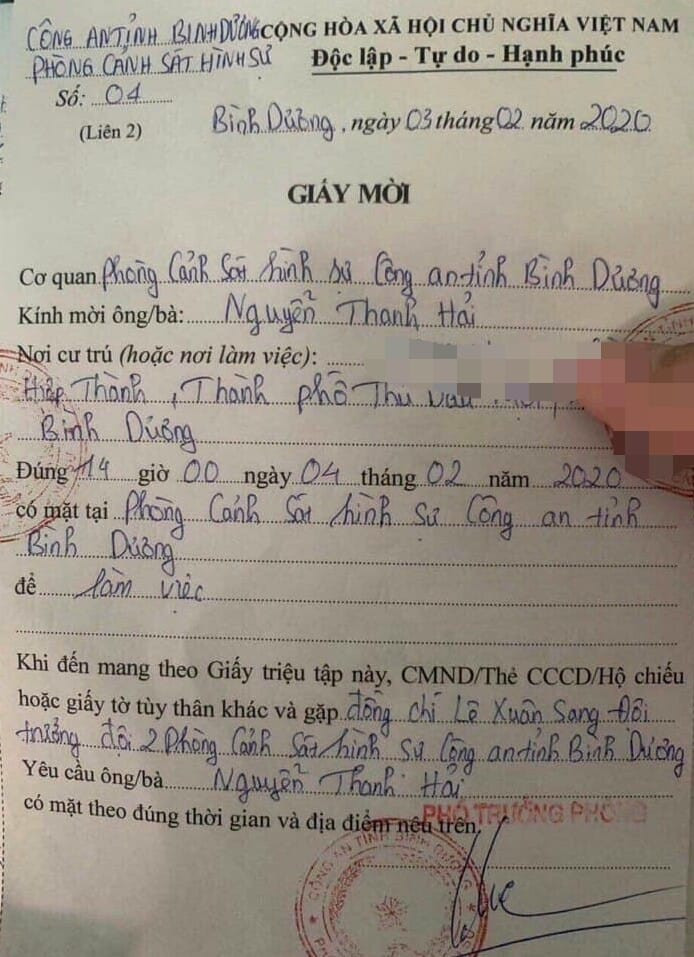 CÔNG AN TỈNH BÌNH DƯƠNG CỘNG HÒA XÃ HỘI CHỦ NGHĨA VIỆT NAM
PHÒNG CẢNH SÁT HÌNH SỰ Độc lập - Tự do - Hạnh phúc
Số: 04
(Liên 2) Bình Dương, ngày 03 tháng 02 năm 2020
GIẤY MỜI
Cơ quan phòng Cảnh Sát hình sự Công an tỉnh Bình Dương
Kính mời ông/bà: Nguyễn Thanh Hải
Nơi cư trú (hoặc nơi làm việc):
Hiệp Thành, Thành phố Thủ
Bình Dương
Đúng 14 giờ 00 ngày 04 tháng 02 năm 2020
có mặt tại Phòng Cảnh Sát hình sự Công an tỉnh
Bình Dương
để làm việc
Khi đến mang theo Giấy triệu tập này, CMND/Thẻ CCCD/Hộ chiếu
hoặc giấy tờ tùy thân khác và gặp đồng chí Lê Xuân Sang Đội
trưởng đội 2 Phòng Cảnh Sát hình sự Công an tỉnh Bình Dương
Yêu cầu ông/bà Nguyễn Thanh Hải
có mặt theo đúng thời gian và địa điểm nêu trên.
PHÓ TRƯỞNG PHÒNG
CÔNG AN TỈNH BÌNH DƯƠNG